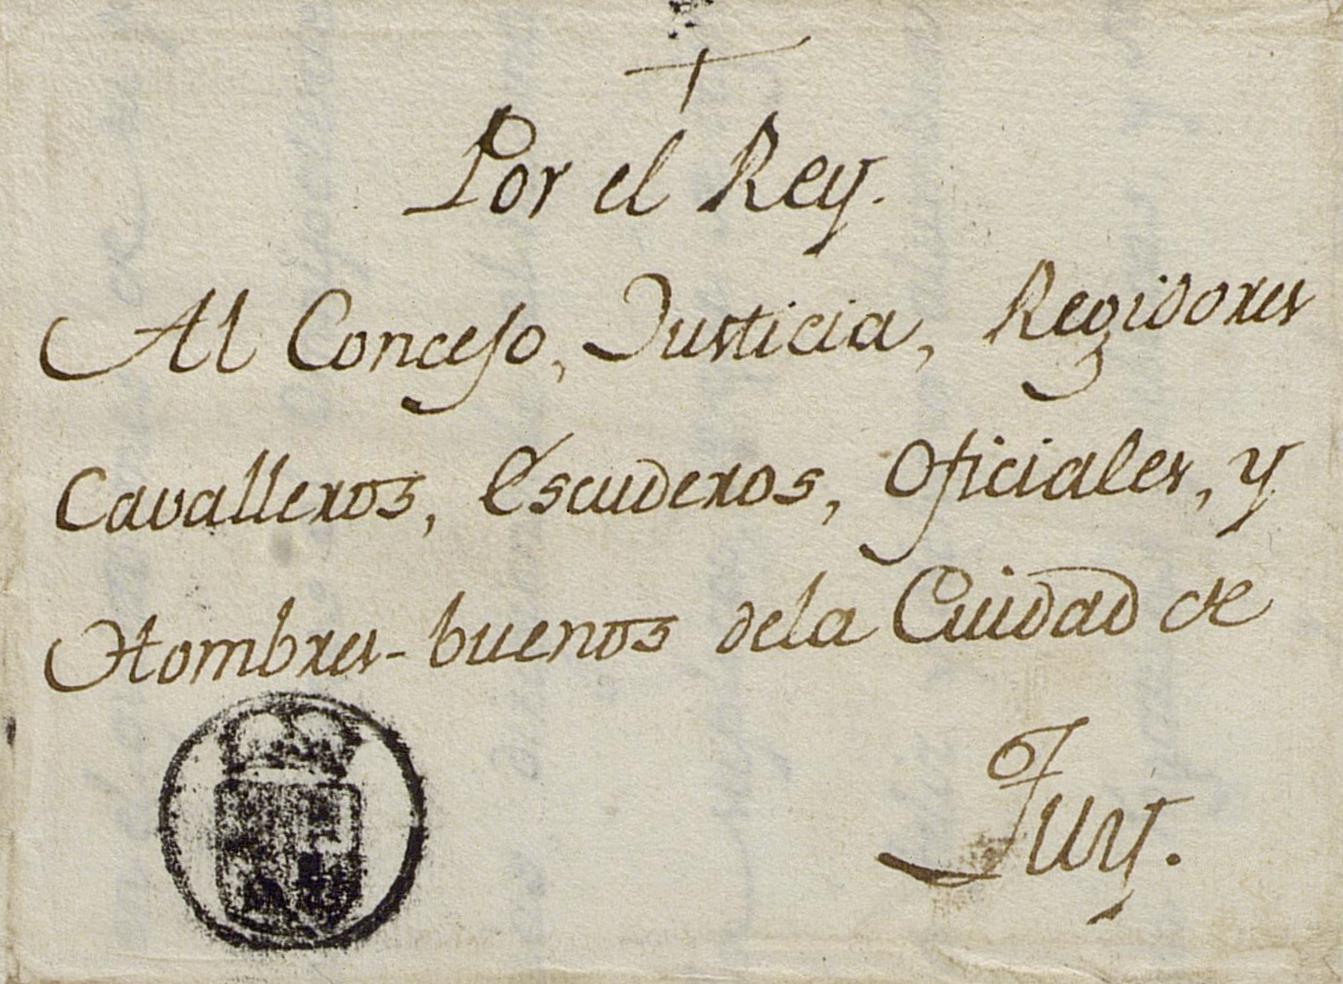 Por el Rey.
Al Concejo, Justicia, Regidores
Cavalleros, Escuderos, Oficiales, y
Hombres-buenos dela Cuidad de
Tuy.